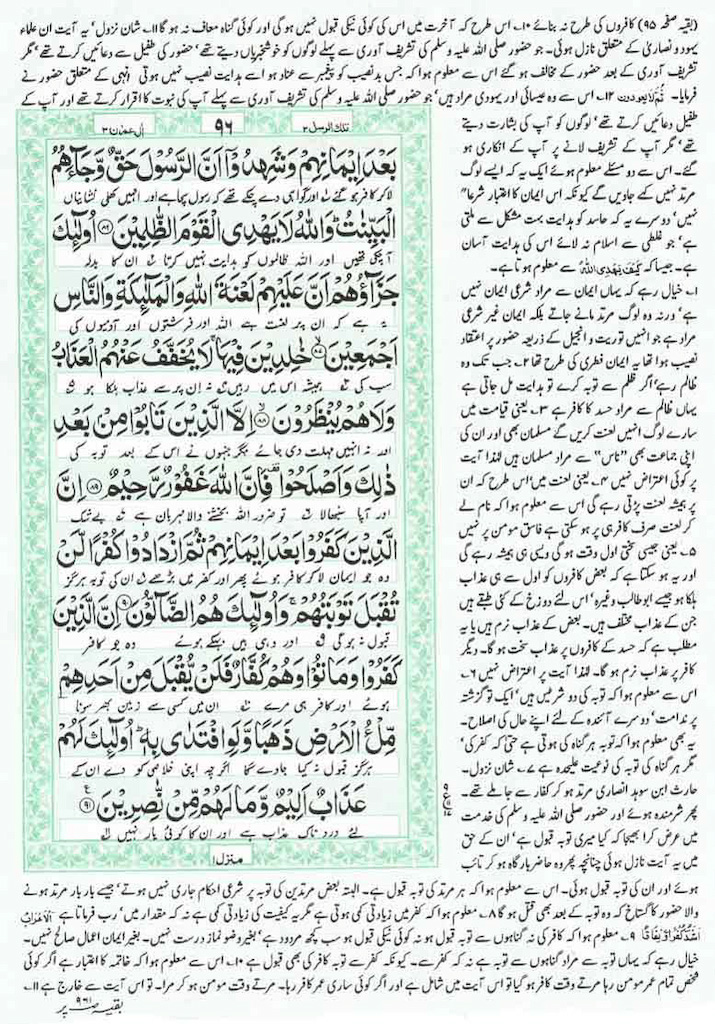 (بقیہ صفحہ ۹۵) کافروں کی طرح نہ بنائے ۱۰۔ اس طرح کہ آخرت میں اس کی کوئی نیکی قبول نہیں ہوگی اور کوئی گناہ معاف نہ ہو گا ۱۱۔ شان نزول‘ یہ آیت ان علماء
یہود و نصاریٰ کے متعلق نازل ہوئی۔ جو حضور صلی اللہ علیہ وسلم کی تشریف آوری سے پہلے لوگوں کو خوشخبریاں دیتے تھے‘ حضور کی طفیل سے دعائیں کرتے تھے‘ مگر
تشریف آوری کے بعد حضور کے مخالف ہو گئے اس سے معلوم ہوا کہ جس بدنصیب کو پیغمبر سے عناد ہو اسے ہدایت نصیب نہیں ہوتی انہی کے متعلق حضور نے
فرمایا۔ ثُمَّ لَا یَعُودون ۱۲۔ اس سے وہ عیسائی اور یہودی مراد ہیں‘ جو حضور صلی اللہ علیہ وسلم کی تشریف آوری سے پہلے آپ کی نبوت کا اقرار کرتے تھے اور آپ کے
تلک الرسل ۲ ۹۶ اٰل عمرٰن ۳
بَعْدَ اِیْمَانِهِمْ وَشَهِدُوْۤا اَنَّ الرَّسُوْلَ حَقٌّ وَّجَآءَهُمُ
لا کر کافر ہو گئے اور گواہی دے چکے تھے کہ رسول سچا ہے اور انہیں کھلی نشانیاں
الْبَیِّنٰتُ ؕ وَاللّٰهُ لَا یَهْدِی الْقَوْمَ الظّٰلِمِیْنَ ۝۸۶ اُولٰٓىِٕكَ
آ چکی تھیں اور اللہ ظالموں کو ہدایت نہیں کرتا ان کا بدلہ
جَزَآؤُهُمْ اَنَّ عَلَیْهِمْ لَعْنَةَ اللّٰهِ وَالْمَلٰٓىِٕكَةِ وَالنَّاسِ
یہ ہے کہ ان پر لعنت ہے اللہ اور فرشتوں اور آدمیوں کی
اَجْمَعِیْنَ ۝۸۷ خٰلِدِیْنَ فِیْهَا ۚ لَا یُخَفَّفُ عَنْهُمُ الْعَذَابُ
سب کی ہمیشہ اس میں رہیں نہ ان پر سے عذاب ہلکا ہو
وَلَا هُمْ یُنْظَرُوْنَ ۝۸۸ اِلَّا الَّذِیْنَ تَابُوْا مِنْۢ بَعْدِ
اور نہ انہیں مہلت دی جائے مگر جنہوں نے اس کے بعد توبہ کی
ذٰلِكَ وَاَصْلَحُوْا ۫ فَاِنَّ اللّٰهَ غَفُوْرٌ رَّحِیْمٌ ۝۸۹ اِنَّ
اور آپا سنبھالا تو ضرور اللہ بخشنے والا مہربان ہے بے شک
الَّذِیْنَ كَفَرُوْا بَعْدَ اِیْمَانِهِمْ ثُمَّ ازْدَادُوْا كُفْرًا لَّنْ
وہ جو ایمان لا کر کافر ہوئے پھر اور کفر میں بڑھے ان کی توبہ ہرگز
تُقْبَلَ تَوْبَتُهُمْ ۚ وَاُولٰٓىِٕكَ هُمُ الضَّآلُّوْنَ ۝۹۰ اِنَّ الَّذِیْنَ
قبول نہ ہوگی اور وہی ہیں بہکے ہوئے وہ جو کافر
كَفَرُوْا وَمَاتُوْا وَهُمْ كُفَّارٌ فَلَنْ یُّقْبَلَ مِنْ اَحَدِهِمْ
ہوئے اور کافر ہی مرے ان میں کسی سے زمین بھر سونا
مِّلْءُ الْاَرْضِ ذَهَبًا وَّلَوِ افْتَدٰى بِهٖ ؕ اُولٰٓىِٕكَ لَهُمْ
ہرگز قبول نہ کیا جاوے گا اگرچہ اپنی خلاصی کو دے ان کے
عَذَابٌ اَلِیْمٌ وَّمَا لَهُمْ مِّنْ نّٰصِرِیْنَ ۝۹۱
لئے دردناک عذاب ہے اور ان کا کوئی یار نہیں
منزل ۱
طفیل دعائیں کرتے تھے‘ لوگوں کو آپ کی بشارت دیتے
تھے‘ مگر آپ کے تشریف لانے پر آپ کے انکاری ہو
گئے۔ اس سے دو مسئلے معلوم ہوئے ایک یہ کہ ایسے لوگ
مرتد نہیں کہے جاویں گے کیونکہ اس ایمان کا اعتبار شرعاً
نہیں‘ دوسرے یہ کہ حاسد کو ہدایت بہت مشکل سے ملتی
ہے‘ جو غلطی سے اسلام نہ لائے اس کی ہدایت آسان
ہے۔ جیسا کہ كَیْفَ یَهْدِی اللّٰهُ سے معلوم ہوتا ہے۔
۱۔ خیال رہے کہ یہاں ایمان سے مراد شرعی ایمان نہیں
ہے‘ ورنہ وہ لوگ مرتد مانے جاتے بلکہ ایمان غیر شرعی
مراد ہے جو انہیں توریت و انجیل کے ذریعہ حضور پر اعتقاد
نصیب ہوا تھا یہ ایمان فطری کی طرح تھا ۲۔ جب تک وہ
ظالم رہے‘ اگر ظلم سے توبہ کرے تو ہدایت مل جاتی ہے
یہاں ظالم سے مراد حسد کا کافر ہے ۳۔ یعنی قیامت میں
سارے لوگ انہیں لعنت کریں گے مسلمان بھی اور ان کی
اپنی جماعت بھی ”ناس“ سے مراد مسلمان ہیں لہٰذا آیت
پر کوئی اعتراض نہیں ۴۔ یعنی لعنت میں‘ اس طرح کہ ان
پر ہمیشہ لعنت پڑتی رہے گی اس سے معلوم ہوا کہ نام لے
کر لعنت صرف کافر ہی پر ہو سکتی ہے فاسق مومن پر نہیں
۵۔ یعنی جیسی سختی اول وقت ہو گی ویسی ہی ہمیشہ رہے گی
اور یہ ہو سکتا ہے کہ بعض کافروں کو اول سے ہی عذاب
ہلکا ہو جیسے ابوطالب وغیرہ‘ اس لئے دوزخ کے کئی طبقے ہیں
جن کے عذاب مختلف ہیں۔ بعض کے عذاب نرم ہیں یا یہ
مطلب ہے کہ حسد کے کافروں پر عذاب سخت ہو گا۔ دیگر
کافر پر عذاب نرم ہو گا۔ لہٰذا آیت پر اعتراض نہیں ۶۔
اس سے معلوم ہوا کہ توبہ کی دو شرطیں ہیں‘ ایک تو گزشتہ
پر ندامت‘ دوسرے آئندہ کے لئے اپنے حال کی اصلاح۔
یہ بھی معلوم ہوا کہ توبہ ہر گناہ کی ہوتی ہے حتیٰ کہ کفر کی‘
مگر ہر گناہ کی توبہ کی نوعیت علیحدہ ہے ۷۔ شان نزول۔
حارث ابن سوید انصاری مرتد ہو کر کفار سے جا ملے تھے۔
پھر شرمندہ ہوئے اور حضور صلی اللہ علیہ وسلم کی خدمت
میں عرض کرا بھیجا کہ کیا میری توبہ قبول ہے‘ ان کے حق
میں یہ آیت نازل ہوئی چنانچہ پھر وہ حاضر بارگاہ ہو کر تائب
ہوئے اور ان کی توبہ قبول ہوئی۔ اس سے معلوم ہوا کہ ہر مرتد کی توبہ قبول ہے۔ البتہ بعض مرتدین کی توبہ پر شرعی احکام جاری نہیں ہوتے‘ جیسے بار بار مرتد ہونے
والا حضور کا گستاخ کہ وہ توبہ کے بعد بھی قتل ہو گا ۸۔ معلوم ہوا کہ کفر میں زیادتی کمی ہوتی ہے مگر یہ کیفیت کی زیادتی کمی ہے نہ کہ مقدار میں‘ رب فرماتا ہے اَلْاَعْرَابُ
اَشَدُّ كُفْرًا وَّ نِفَاقًا ۹۔ معلوم ہوا کہ کافر کی نہ گناہوں سے توبہ قبول ہو نہ کوئی نیکی قبول ہو سب کچھ مردود ہے‘ بغیر وضو نماز درست نہیں۔ بغیر ایمان اعمال صالح نہیں۔
خیال رہے کہ یہاں توبہ سے مراد گناہوں سے توبہ ہے نہ کہ کفر سے۔ کیونکہ کفر سے توبہ کافر کی بھی قبول ہے ۱۰۔ اس سے معلوم ہوا کہ خاتمہ کا اعتبار ہے اگر کوئی
شخص تمام عمر مومن رہا مرتے وقت کافر ہو گیا تو اس آیت میں شامل ہے اور اگر کوئی ساری عمر کافر رہا۔ مرتے وقت مومن ہو کر مرا۔ تو اس آیت سے خارج ہے ۱۱۔
بقیہ صفحہ ۹۶۱ پر